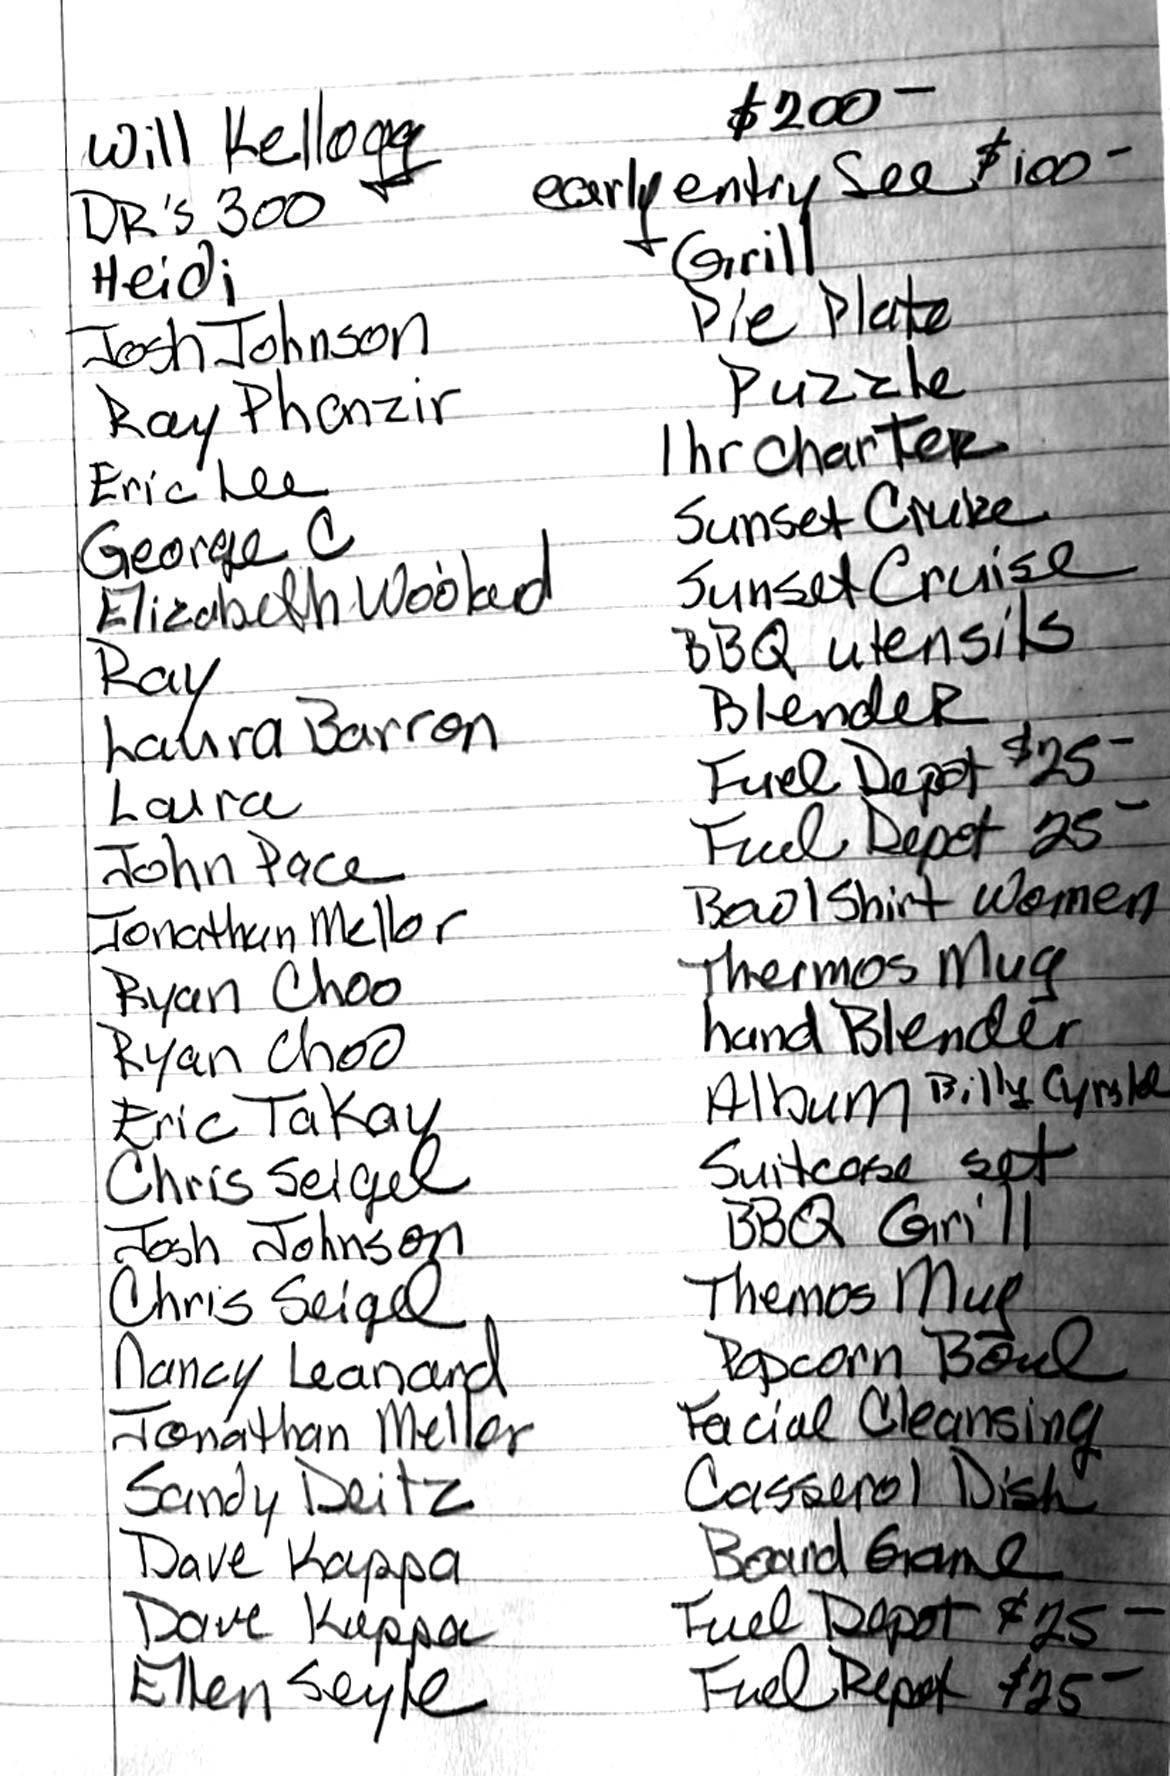 Will Kellogg $200-
DR's 300 early entry See $100-
Heidi Grill
Josh Johnson Pie Plate
Ray Phanzir Puzzle
Eric Lee 1hr charter
George C Sunset Cruise
Elizabeth Sunset Cruise
Ray BBQ utensils
Laura Barron Blender
Laura Fuel Depot $25-
John Pace Fuel Depot 25-
Jonathan Mellor Bowl Shirt Women
Ryan Choo Thermos Mug
Ryan Choo hand Blender
Eric Takay Album Billy
Chris Seigel Suitcase set
Josh Johnson BBQ Grill
Chris Seigel Themos Mug
Nancy Leanard Popcorn Bowl
Jonathan Mellor Facial Cleansing
Sandy Deitz Casserol Dish
Dave Kappa Board Game
Dave Kappa Fuel Depot $25-
Ellen Seyle Fuel Depot $25-